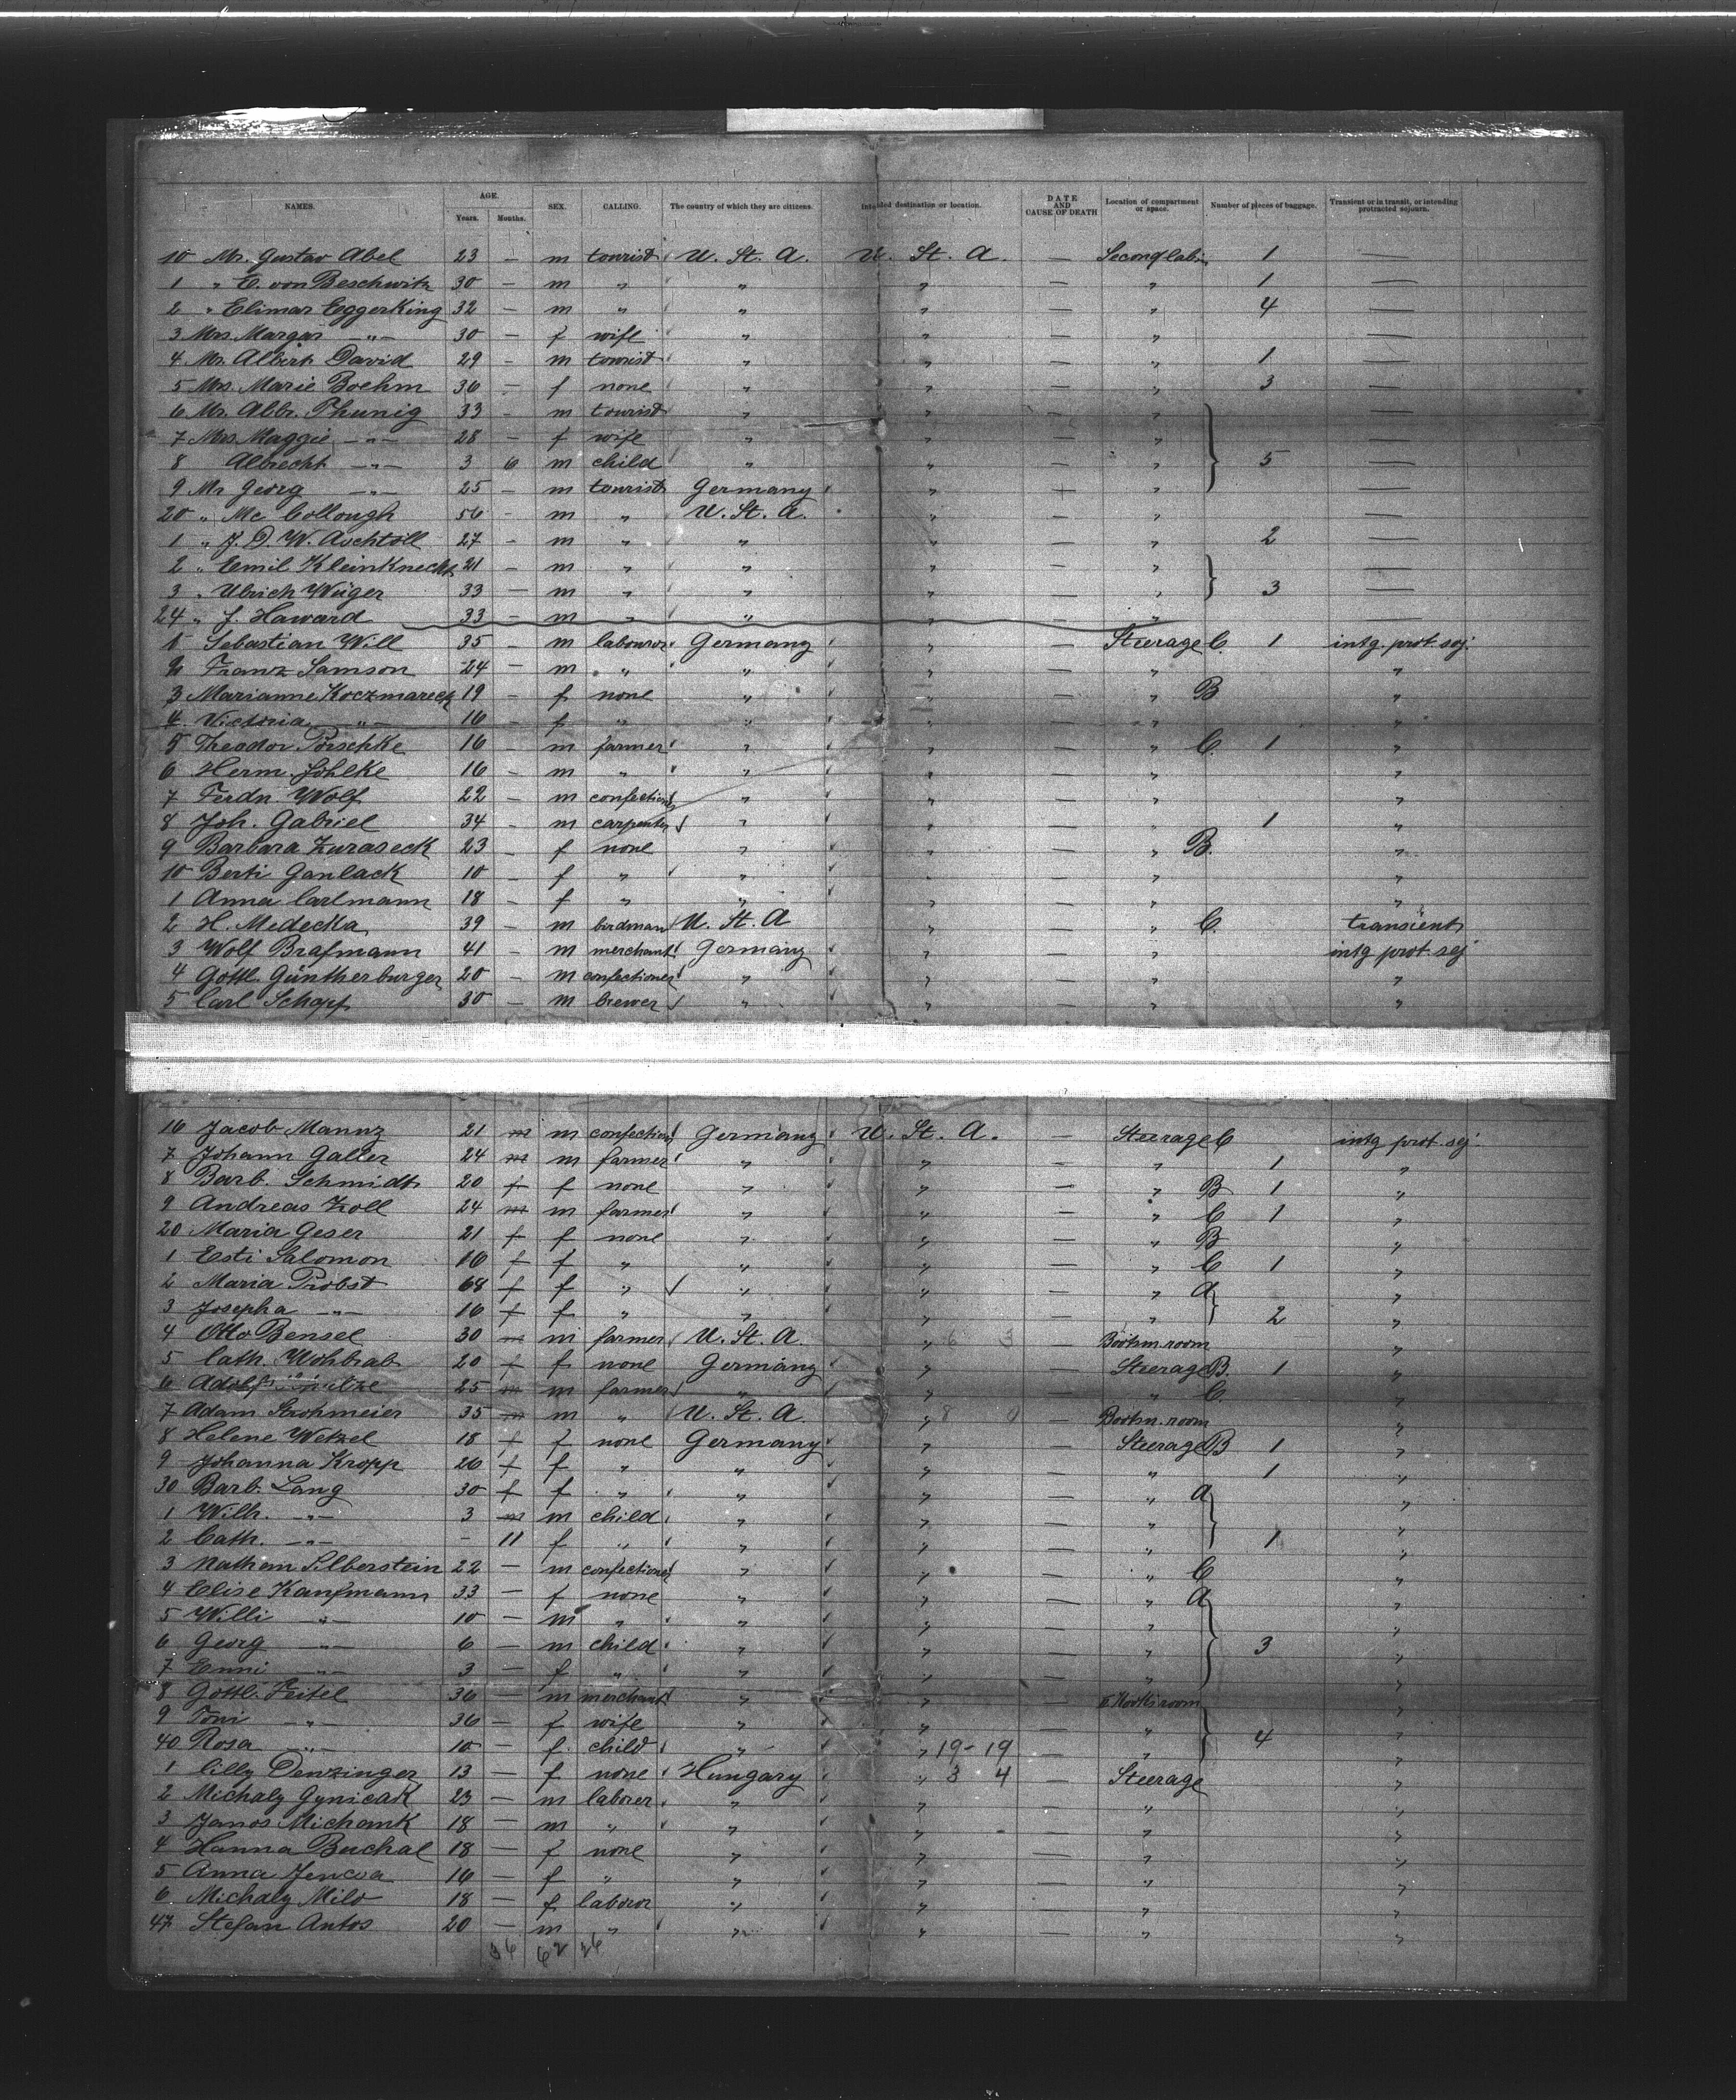 NAMES. AGE. Years. Months. SEX. CALLING. The country of which they are citizens. Intended destination or location. DATE AND CAUSE OF DEATH Location of compartment or space. Number of pieces of baggage. Transient or in transit, or intending protracted sojourn.
10 Mr. Gustav Abel 23 — m tourist U. St. A. U. St. A. — Second Cabin 1 —
1 " E. von Beschwitz 30 — m " " " — " 1 —
2 " Elimar Eggerking 32 — m " " " — " 4 —
3 Mrs. Margar. —"— 30 — f wife " " — " —
4 Mr. Albert David 29 — m tourist " " — " 1 —
5 Mrs. Marie Boehm 36 — f none " " — " 3 —
6 Mr. Albr. Thunig 33 — m tourist " " — " —
7 Mrs. Maggie —"— 28 — f wife " " — " —
8 Albrecht —"— 3 6 m child " " — " 5 —
9 Mr Georg —"— 25 — m tourist Germany " — " —
20 " Mc Collough 56 — m " U. St. A. " — " —
1 " J. D. W. 27 — m " " " — " 2 —
2 " Emil Kleinknecht 21 — m " " " — " —
3 " Ulrich Wüger 33 — m " " " — " 3 —
24 " J. Haward 33 — m " " " — "
1 Sebastian Will 35 — m labouror Germany " — Steerage C. 1 intg. prot. soj.
2 Franz Samson 24 — m " " " — " "
3 Marianne Koczmareck 19 — f none " " — " B "
4 Victoria —"— 16 — f " " " — " "
5 Theodor Pörschke 16 — m farmer " " — " C. 1 "
6 Herm. Johlke 16 — m " " " — " "
7 Ferdn. Wolf 22 — m confection " " — " "
8 Joh. Gabriel 34 — m carpenter " " — " 1 "
9 Barbara Zuraseck 23 — f none " " — " B. "
10 Berti Ganlack 10 — f " " " — " "
1 Anna Carlmann 18 — f " " " — " "
2 H. Medecka 39 — m birdman U. St. A " — " C. transient
3 Wolf Brafmann 41 — m merchant Germany " — " intg prot. soj
4 Gottl. Güntherburger 20 — m confectioner " " — " "
5 Carl Schopf 30 — m brewer " " — " "
16 Jacob Mannz 21 m m confection Germany U. St. A. — Steerage C intg prot. soj.
7 Johann Galler 24 m m farmer " " — " 1 "
8 Barb. Schmidt 20 f f none " " — " B 1 "
9 Andreas Zoll 24 m m farmer " " — " C 1 "
20 Maria Geser 21 f f none " " — " B "
1 Esti Salomon 16 f f " " " — " C 1 "
2 Maria Probst 68 f f " " " — " A "
3 Josepha —"— 16 f f " " " — " 2 "
4 Otto Bensel 30 m m farmer U. St. A. " 6 3 Bootsm. room "
5 Cath. Wohlrab 20 f f none Germany " — Steerage B. 1 "
6 Adolf 25 m m farmer " " — " C. "
7 Adam Strohmeier 35 m m " U. St. A. " 8 0 — Bootsm. room "
8 Helene Wetzel 18 f f none Germany " — Steerage B 1 "
9 Johanna Kropp 26 f f " " " — " 1 "
30 Barb. Lang 30 f f " " " — " A "
1 Wilh. —"— 3 m m child " " — " "
2 Cath. —"— — 11 f " " " — " 1 "
3 Nathan Silberstein 22 — m confectioner " " — " C "
4 Elise Kaufmann 33 — f none " " — " A "
5 Willi —"— 10 — m " " " — " "
6 Georg —"— 6 — m child " " — " 3 "
7 Enni —"— 3 — f " " " — " "
8 Gottl. Zeitel 36 — m merchant " " room "
9 Toni —"— 36 — f wife " " — " "
40 Rosa —"— 10 — f child " " 19-19 — " 4 "
1 Cilly Denzinger 13 — f none Hungary " 3 4 — Steerage "
2 Michaly Gynicak 23 — m laborer " " — " "
3 Janos Michank 18 — m " " " — " "
4 Hanna Buchal 18 — f none " " — " "
5 Anna Jencsa 16 — f " " " — " "
6 Michaly Milo 18 — f laboror " " — " "
47 Stefan Antos 20 — m " " " — " "
36 62 26